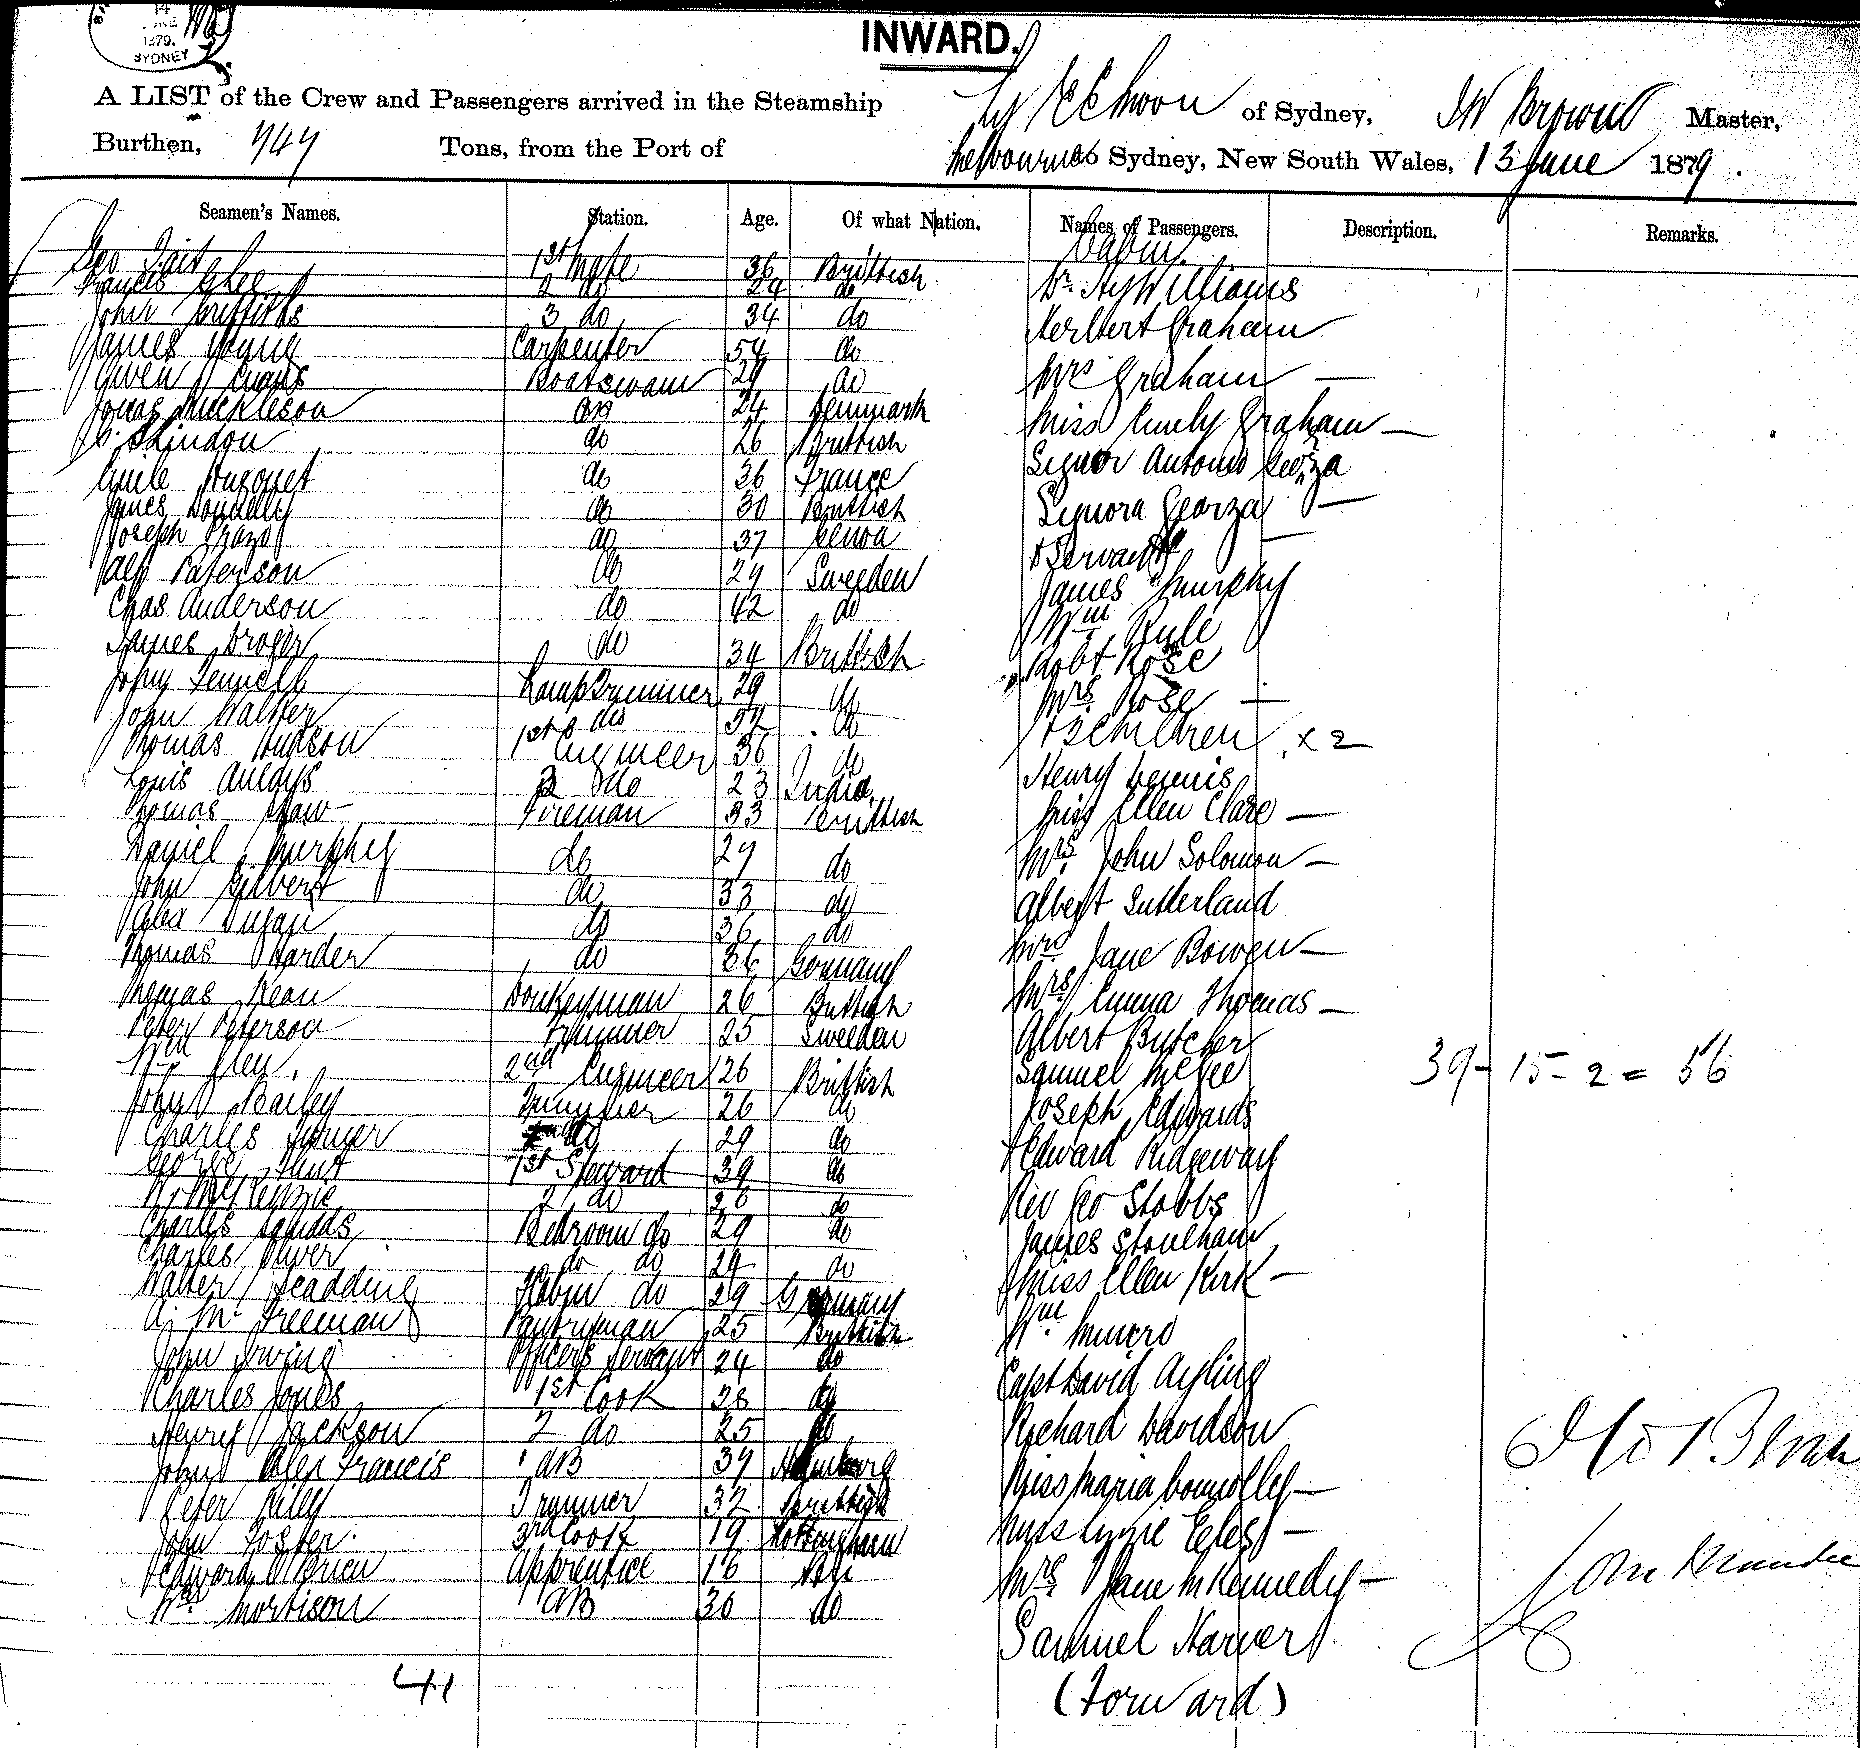 14
1879.
SYDNEY
INWARD.
A LIST of the Crew and Passengers arrived in the Steamship Ly EE Moon of Sydney, JW Brown Master,
Burthen, 747 Tons, from the Port of Melbourne to Sydney, New South Wales, 13 June 1879.
Seamen's Names. Station. Age. Of what Nation. Names of Passengers. Description. Remarks.
Cabin.
Geo Tait 1st Mate 36 Brittish
Francis Ghee 2 do 29 do Dr. Hy Williams
John Griffiths 3 do 34 do Herbert Graham
James Young Carpenter 54 do
Owen Evans Boatswain 29 do Mrs Graham —
Jonas Mickleson AB 24 Denmark Miss Emily Graham —
C. Skindon do 26 Brittish
Emile Hugouet do 36 France Signor Antonio
James Donnelly do 30 Brittish Signora —
Joseph do 37 Genoa & Servant —
Alf Paterson do 29 Sweeden James Murphy
Chas Anderson do 42 do Wm Rule
James do 34 Brittish Robt Rose
John Fennell Lamp Trimmer 29 do Mrs. Rose —
John Walker do 52 do & 3 Children x 2
Thomas Hudson 1st Engineer 36 do
Louis 3 do 23 India. Henry Dennis
Thomas Shaw Fireman 33 Brittish Miss Ellen Clare —
Daniel Murphy do 27 do Mrs. John Solomon —
John Gilbert do 33 do Albert Sutherland
Alex Dugan do 36 do
Thomas Harder do 36 Germany Mrs Jane Bowen —
Thomas Kean Donkeyman 26 Brittish Mrs Emma Thomas —
Peter Peterson Trimmer 25 Sweeden Albert Butcher
Wm Glen. 2nd Engineer 26 Brittish Samuel McGee
39 - 15 - 2 = 56
John Bailey Trimmer 26 do Joseph Edwards
Charles do 29 do Edward Ridgeway
George Hunt 1st Steward 39 do
McKenzie 2 do 26 do Rev Geo Stobbs
Charles Bedroom do 29 do James Stoneham
Charles Oliver do do 24 do Miss Ellen Kirk —
Walter Scadding Cabin do 29 Germany
A. Mc Freeman Pantryman 25 Brittish Wm. Munro
John Irving Officers Servant 24 do Capt David Ayling
Charles Jones 1st Cook 28 do
Henry Jackson 2 do 25 do Richard Davidson
John Alex Francis AB 39 Hamburg Miss Maria Connolley —
Peter Riley Trimmer 32 Brittish
John Foster. 3rd Cook 19 Nottingham Miss —
Edward O'Brien Apprentice 16 Mrs. Jane McKennedy —
Wm. Morrison AB 30 do
Samuel Harvey
41
(Forward)